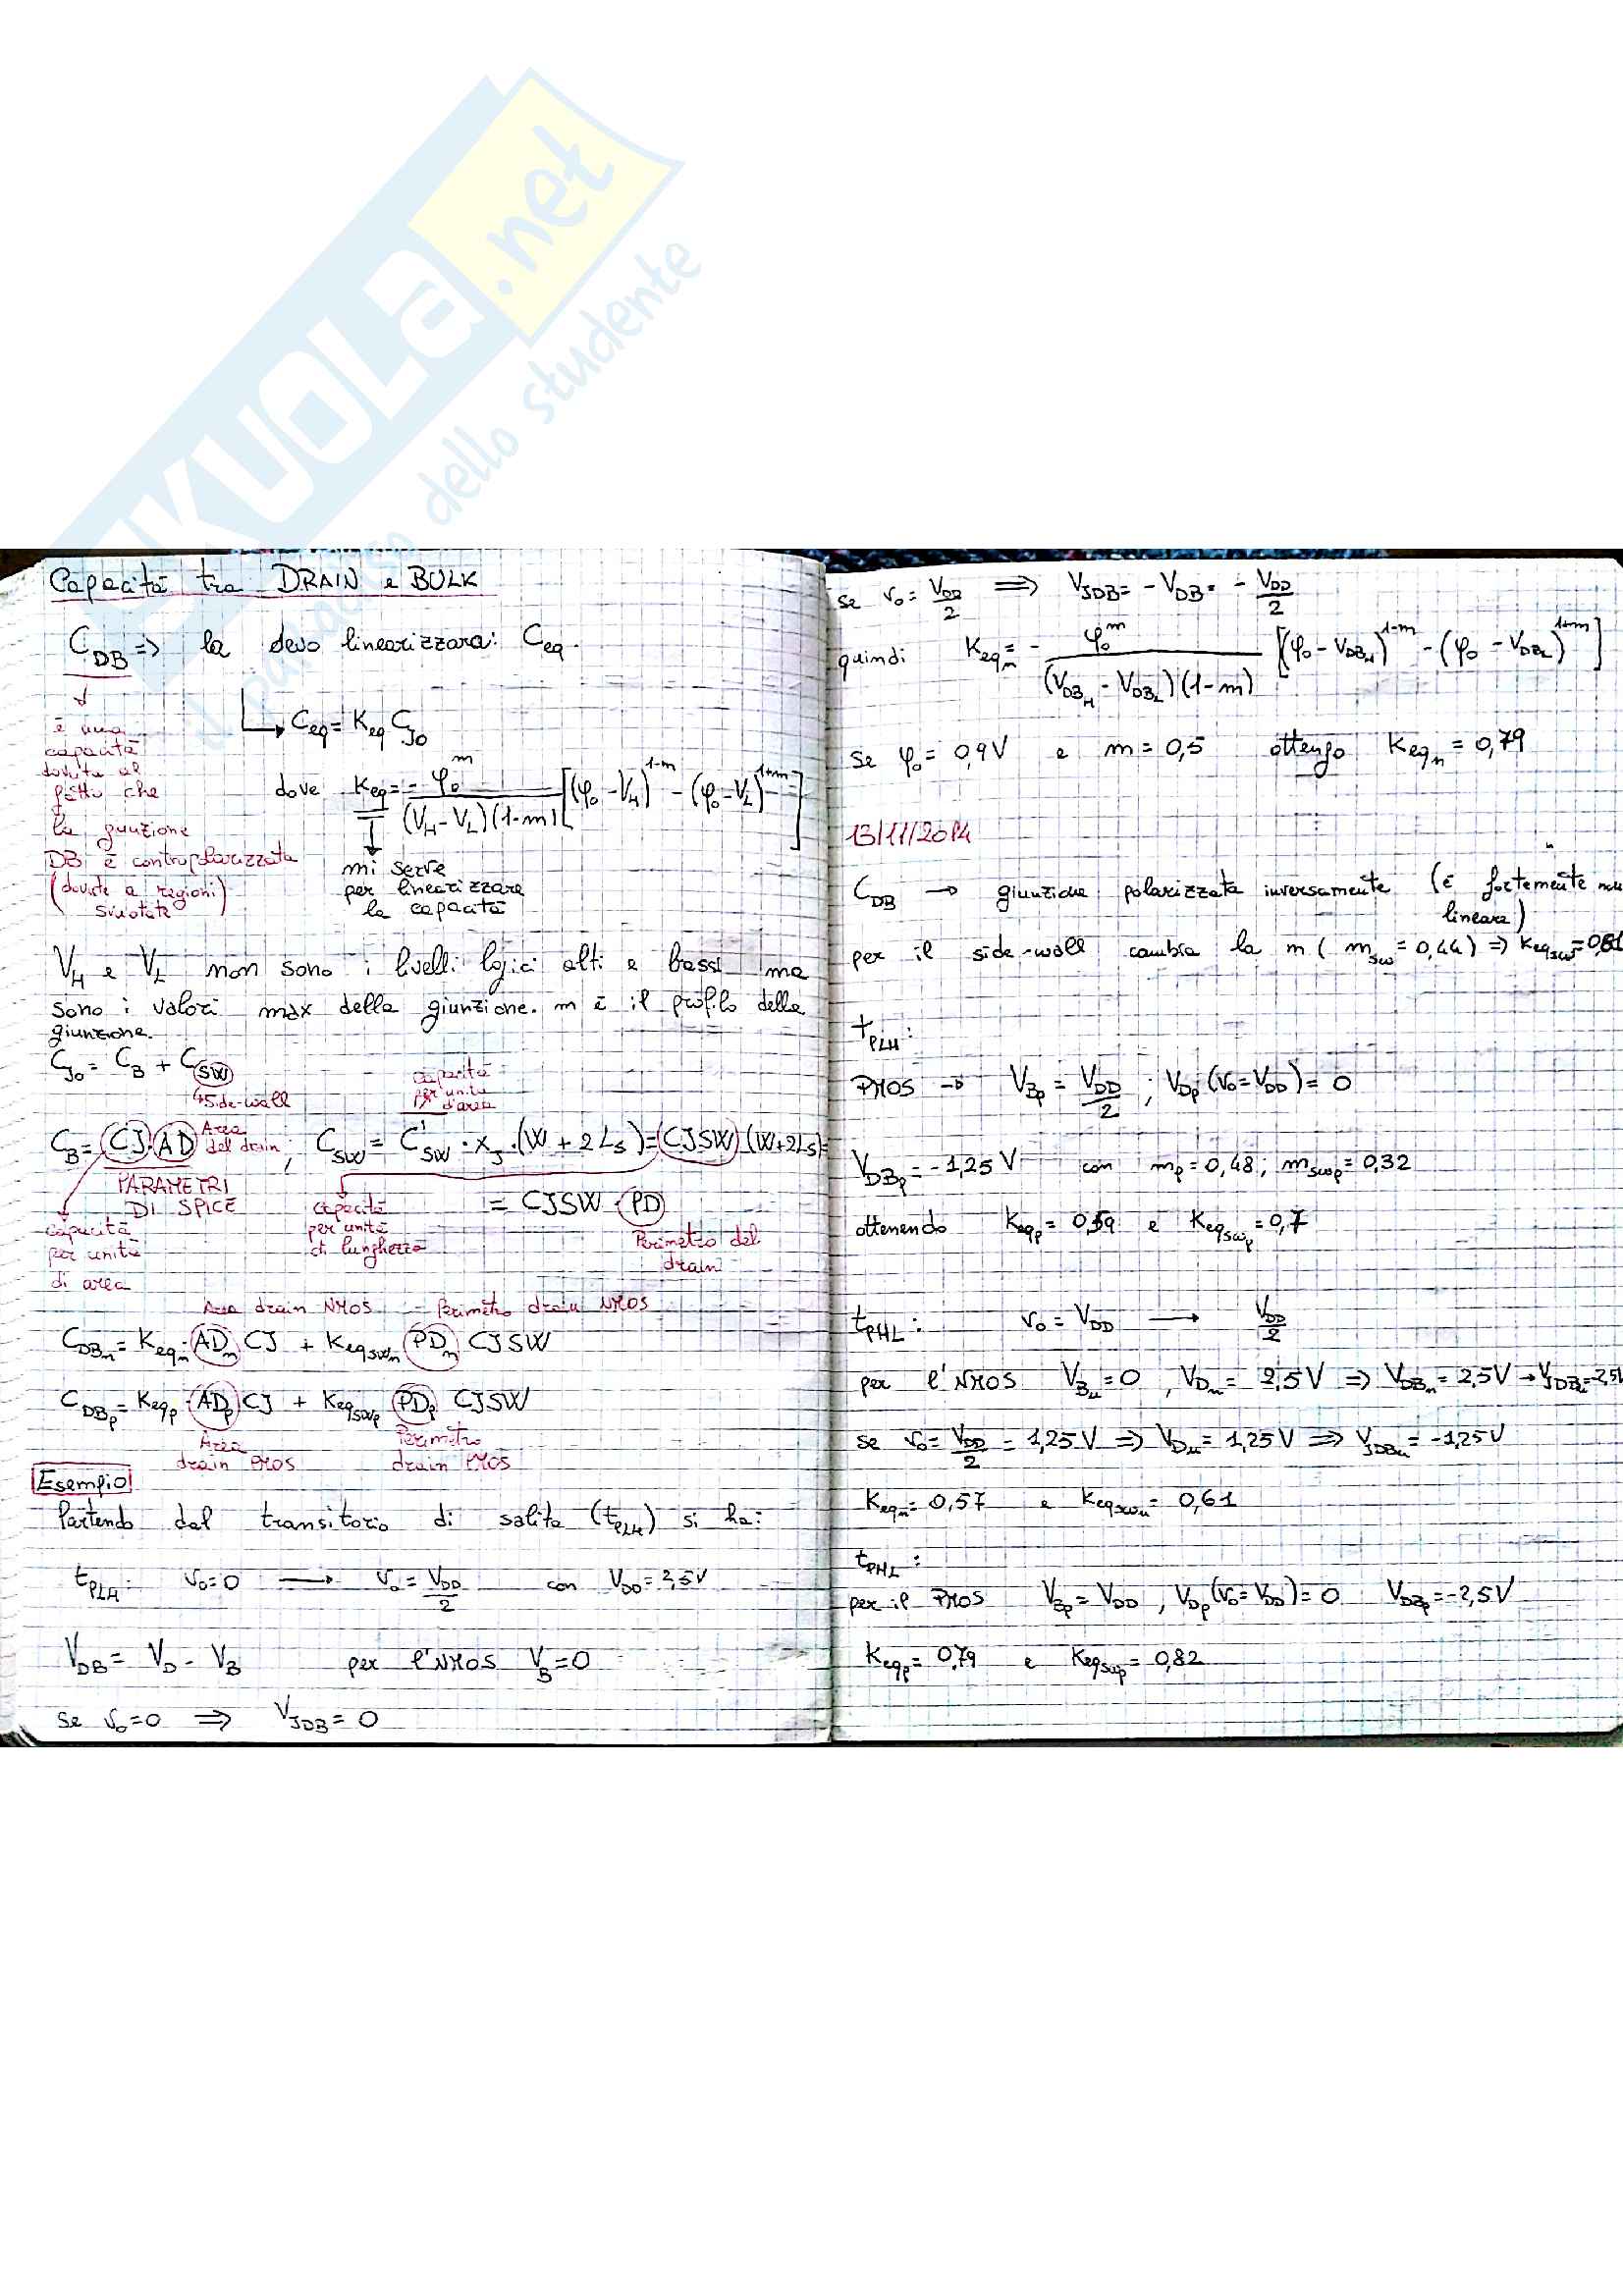 SKUOLA.net
il paradiso dello studente
Capacità tra DRAIN e BULK
C_DB => la devo linearizzara: Ceq.
↓
è una
capacità
dovuta al
fatto che
la giunzione
DB è contropolarizzata
(dovute a regioni)
svuotate
↳ Ceq = Keq C_J0
dove Keq = - φ0^m / ((V_H - V_L)(1-m)) [(φ0 - V_H)^(1-m) - (φ0 - V_L)^(1-m)]
↓
mi serve
per linearizzare
la capacità
V_H e V_L non sono i livelli logici alti e bassi ma
sono i valori max della giunzione. m è il profilo della
giunzione.
C_J0 = C_B + C_SW
side-wall
capacità
per unità
d'area
C_B = CJ·AD Area del drain ; C_SW = C'_SW · x_J · (W + 2L_S) = CJSW (W+2L_S) =
PARAMETRI
DI SPICE
capacità
per unità
di area
capacità
per unità
di lunghezza
= CJSW · PD
Perimetro del
drain
Area drain NMOS Perimetro drain NMOS
C_DBn = Keq_n · AD_n CJ + Keq_swn PD_n CJSW
C_DBp = Keq_p · AD_p CJ + Keq_swp PD_p CJSW
Area
drain PMOS
Perimetro
drain PMOS
Esempio
Partendo dal transitorio di salita (t_PLH) si ha:
t_PLH: v0=0 → v0 = V_DD/2 con V_DD = 2,5V
V_DB = V_D - V_B per l'NMOS V_B=0
se v0=0 ⇒ V_JDB = 0
se v0 = V_DD/2 ⇒ V_JDB = -V_DB = - V_DD/2
quindi Keq_n = - φ0^m / ((V_DBH - V_DBL)(1-m)) [(φ0 - V_DBH)^(1-m) - (φ0 - V_DBL)^(1-m)]
se φ0 = 0,9V e m = 0,5 ottengo Keq_n = 0,79
13/11/2014
C_DB → giunzione polarizzata inversamente (è fortemente non
lineare)
per il side-wall cambia la m (m_sw = 0,44) ⇒ Keq_sw = 0,81
t_PLH:
PMOS → V_Bp = V_DD/2 ; V_Dp (v0 = V_DD) = 0
V_DBp = -1,25 V con m_p = 0,48; m_swp = 0,32
ottenendo Keq_p = 0,59 e Keq_swp = 0,7
t_PHL: v0 = V_DD → V_DD/2
per l'NMOS V_Bn = 0 , V_Dn = 2,5 V ⇒ V_DBn = 2,5 V → V_JDBn = 2,5V
se v0 = V_DD/2 = 1,25 V ⇒ V_Dn = 1,25 V ⇒ V_JDBn = -1,25V
Keq_n = 0,57 e Keq_swn = 0,61
t_PHL:
per il PMOS V_Bp = V_DD , V_Dp (v0 = V_DD) = 0 V_DBp = -2,5 V
Keq_p = 0,79 e Keq_swp = 0,82